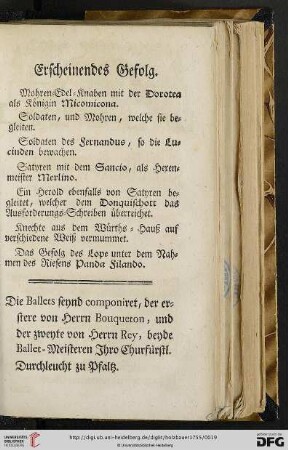 Erscheinendes Gefolg.
Mohren-Edel-Knaben mit der Dorotea
als Königin Micomicona.
Soldaten, und Mohren, welche sie be-
gleiten.
Soldaten des Fernandus, so die Lu-
cinden bewachen.
Satyren mit dem Sancio, als Hexen-
meister Merlino.
Ein Herold ebenfalls von Satyren be-
gleitet, welcher dem Donquischott das
Ausforderungs-Schreiben überreichet.
Knechte aus dem Würths-Hauß auf
verschiedene Weiß vermummet.
Das Gefolg des Lope unter dem Nah-
men des Riesens Panda Filando.
Die Ballets seynd componiret, der er-
stere von Herrn Bouqueton, und
der zweyte von Herrn Rey, beyde
Ballet-Meisteren Ihro Churfürstl.
Durchleucht zu Pfaltz.
UNIVERSITÄTS-
BIBLIOTHEK
HEIDELBERG
http://digi.ub.uni-heidelberg.de/diglit/holzbauer1755/0019
© Universitätsbibliothek Heidelberg
gefördert durch die
DFG